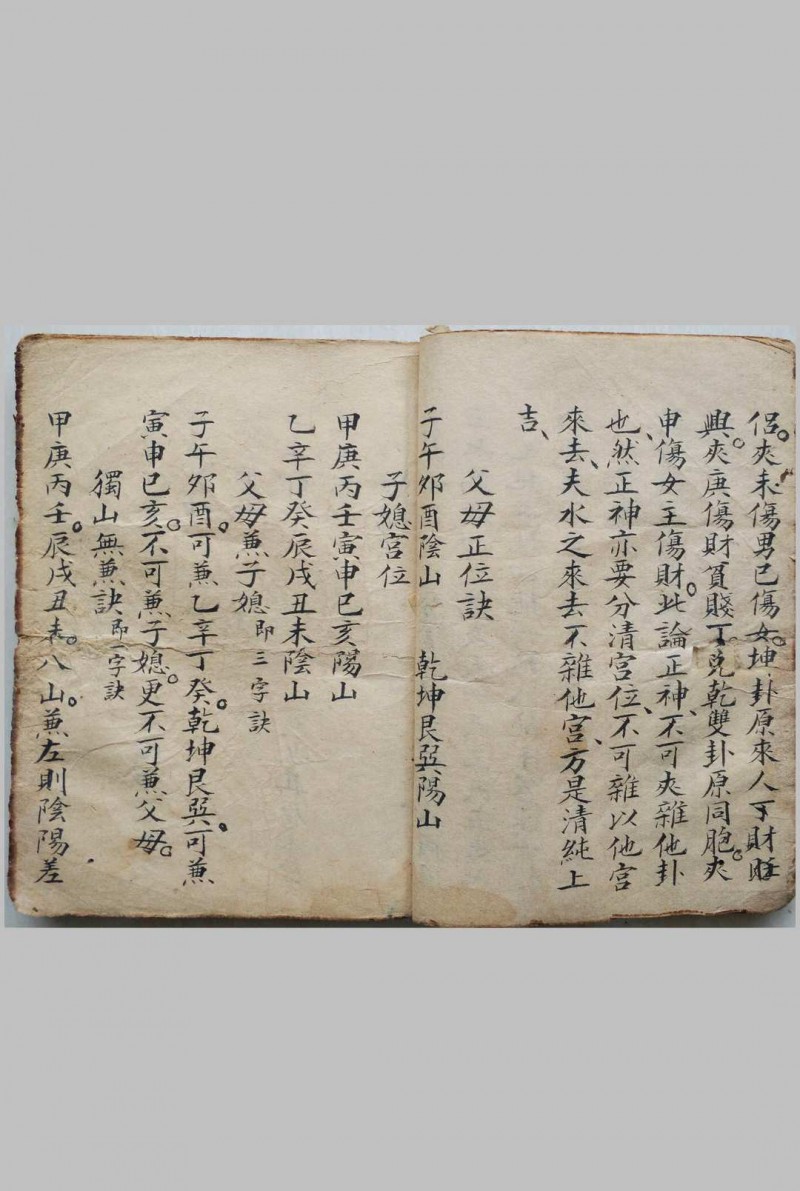 侶。夾未傷男巳傷女。坤卦原來人丁財旺
興。夾庚傷財貧賤丁。兌乾雙卦原同胞。夾
申傷女主傷財。此論正神、不可夾雜他卦
也、然正神亦要分清宮位、不可雜以他宮
來去、夫水之來去不雜他宮、方是清純上
吉、
父母正位訣
子午夘酉陰山 乾坤艮巽陽山
子媳宮位
甲庚丙壬寅申巳亥陽山
乙辛丁癸辰戌丑未陰山
父母兼子媳即三字訣
子午夘酉。可兼乙辛丁癸。乾坤艮巽。可兼
寅申巳亥。不可兼子媳。更不可兼父母。
獨山無兼訣即一字訣
甲庚丙壬。辰戌丑未。八山。兼左則陰陽差